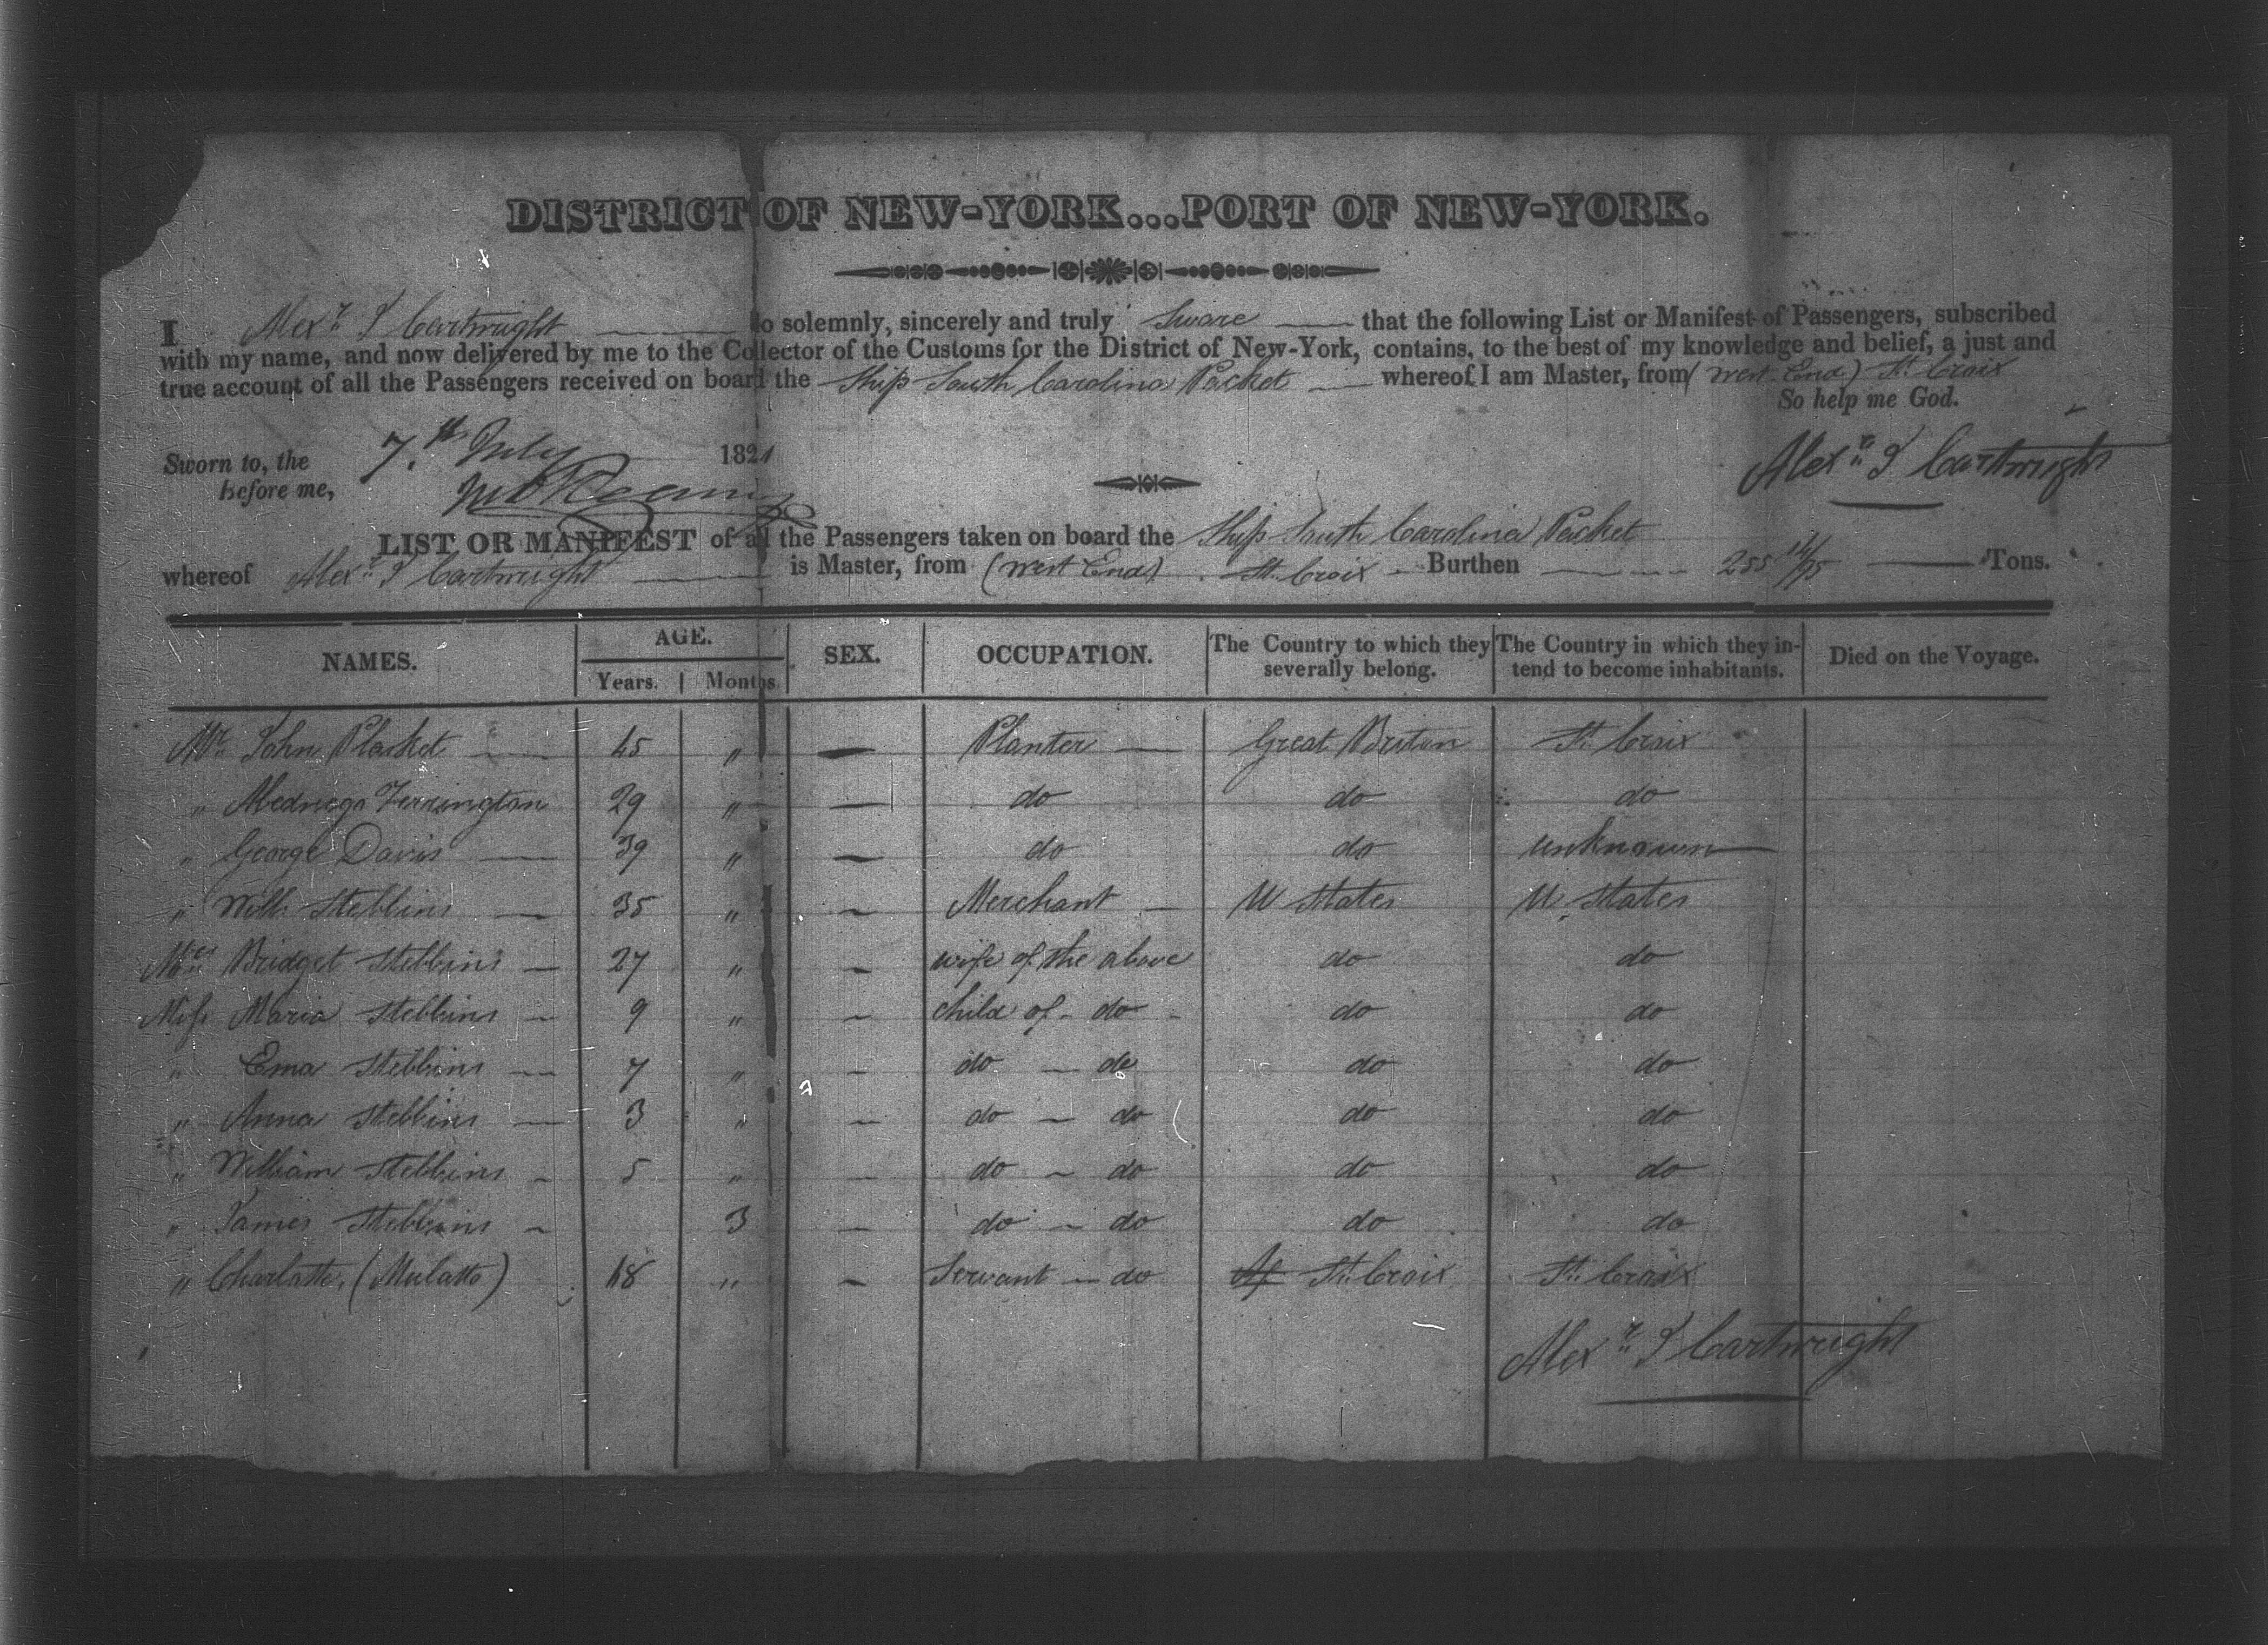 DISTRICT OF NEW-YORK...PORT OF NEW-YORK.
I Alexr. J Cartwright do solemnly, sincerely and truly Sware that the following List or Manifest of Passengers, subscribed
with my name, and now delivered by me to the Collector of the Customs for the District of New-York, contains, to the best of my knowledge and belief, a just and
true account of all the Passengers received on board the Ship South Carolina Packet whereof I am Master, from (West End) St. Croix
So help me God.
Sworn to, the 7.th July 1821
Before me,
Alexr. J Cartwright
LIST OR MANIFEST of all the Passengers taken on board the Ship South Carolina Packet
whereof Alexr. J Cartwright is Master, from (West End) St. Croix Burthen 255 14/95 Tons.
NAMES. AGE. Years. Months SEX. OCCUPATION. The Country to which they severally belong. The Country in which they intend to become inhabitants. Died on the Voyage.
Mr. John Plasket 45 " Planter Great Britan St. Croix
" Abednego Ferrington 29 " do do do
" George Davis 39 " do do unknown
" Willm Stebbins 35 " Merchant U States U. States
Mrs. Bridget Stebbins 27 " wife of the above do do
Miss Maria Stebbins 9 " child of - do - do do
" Ema Stebbins 7 " do - do do do
" Anna Stebbins 3 " do - do do do
" William Stebbins 5 " do - do do do
" James Stebbins 3 do - do do do
" Charlotte, (Mulatto) 18 " Servant - do St. Croix St. Croix
Alexr. J Cartwright